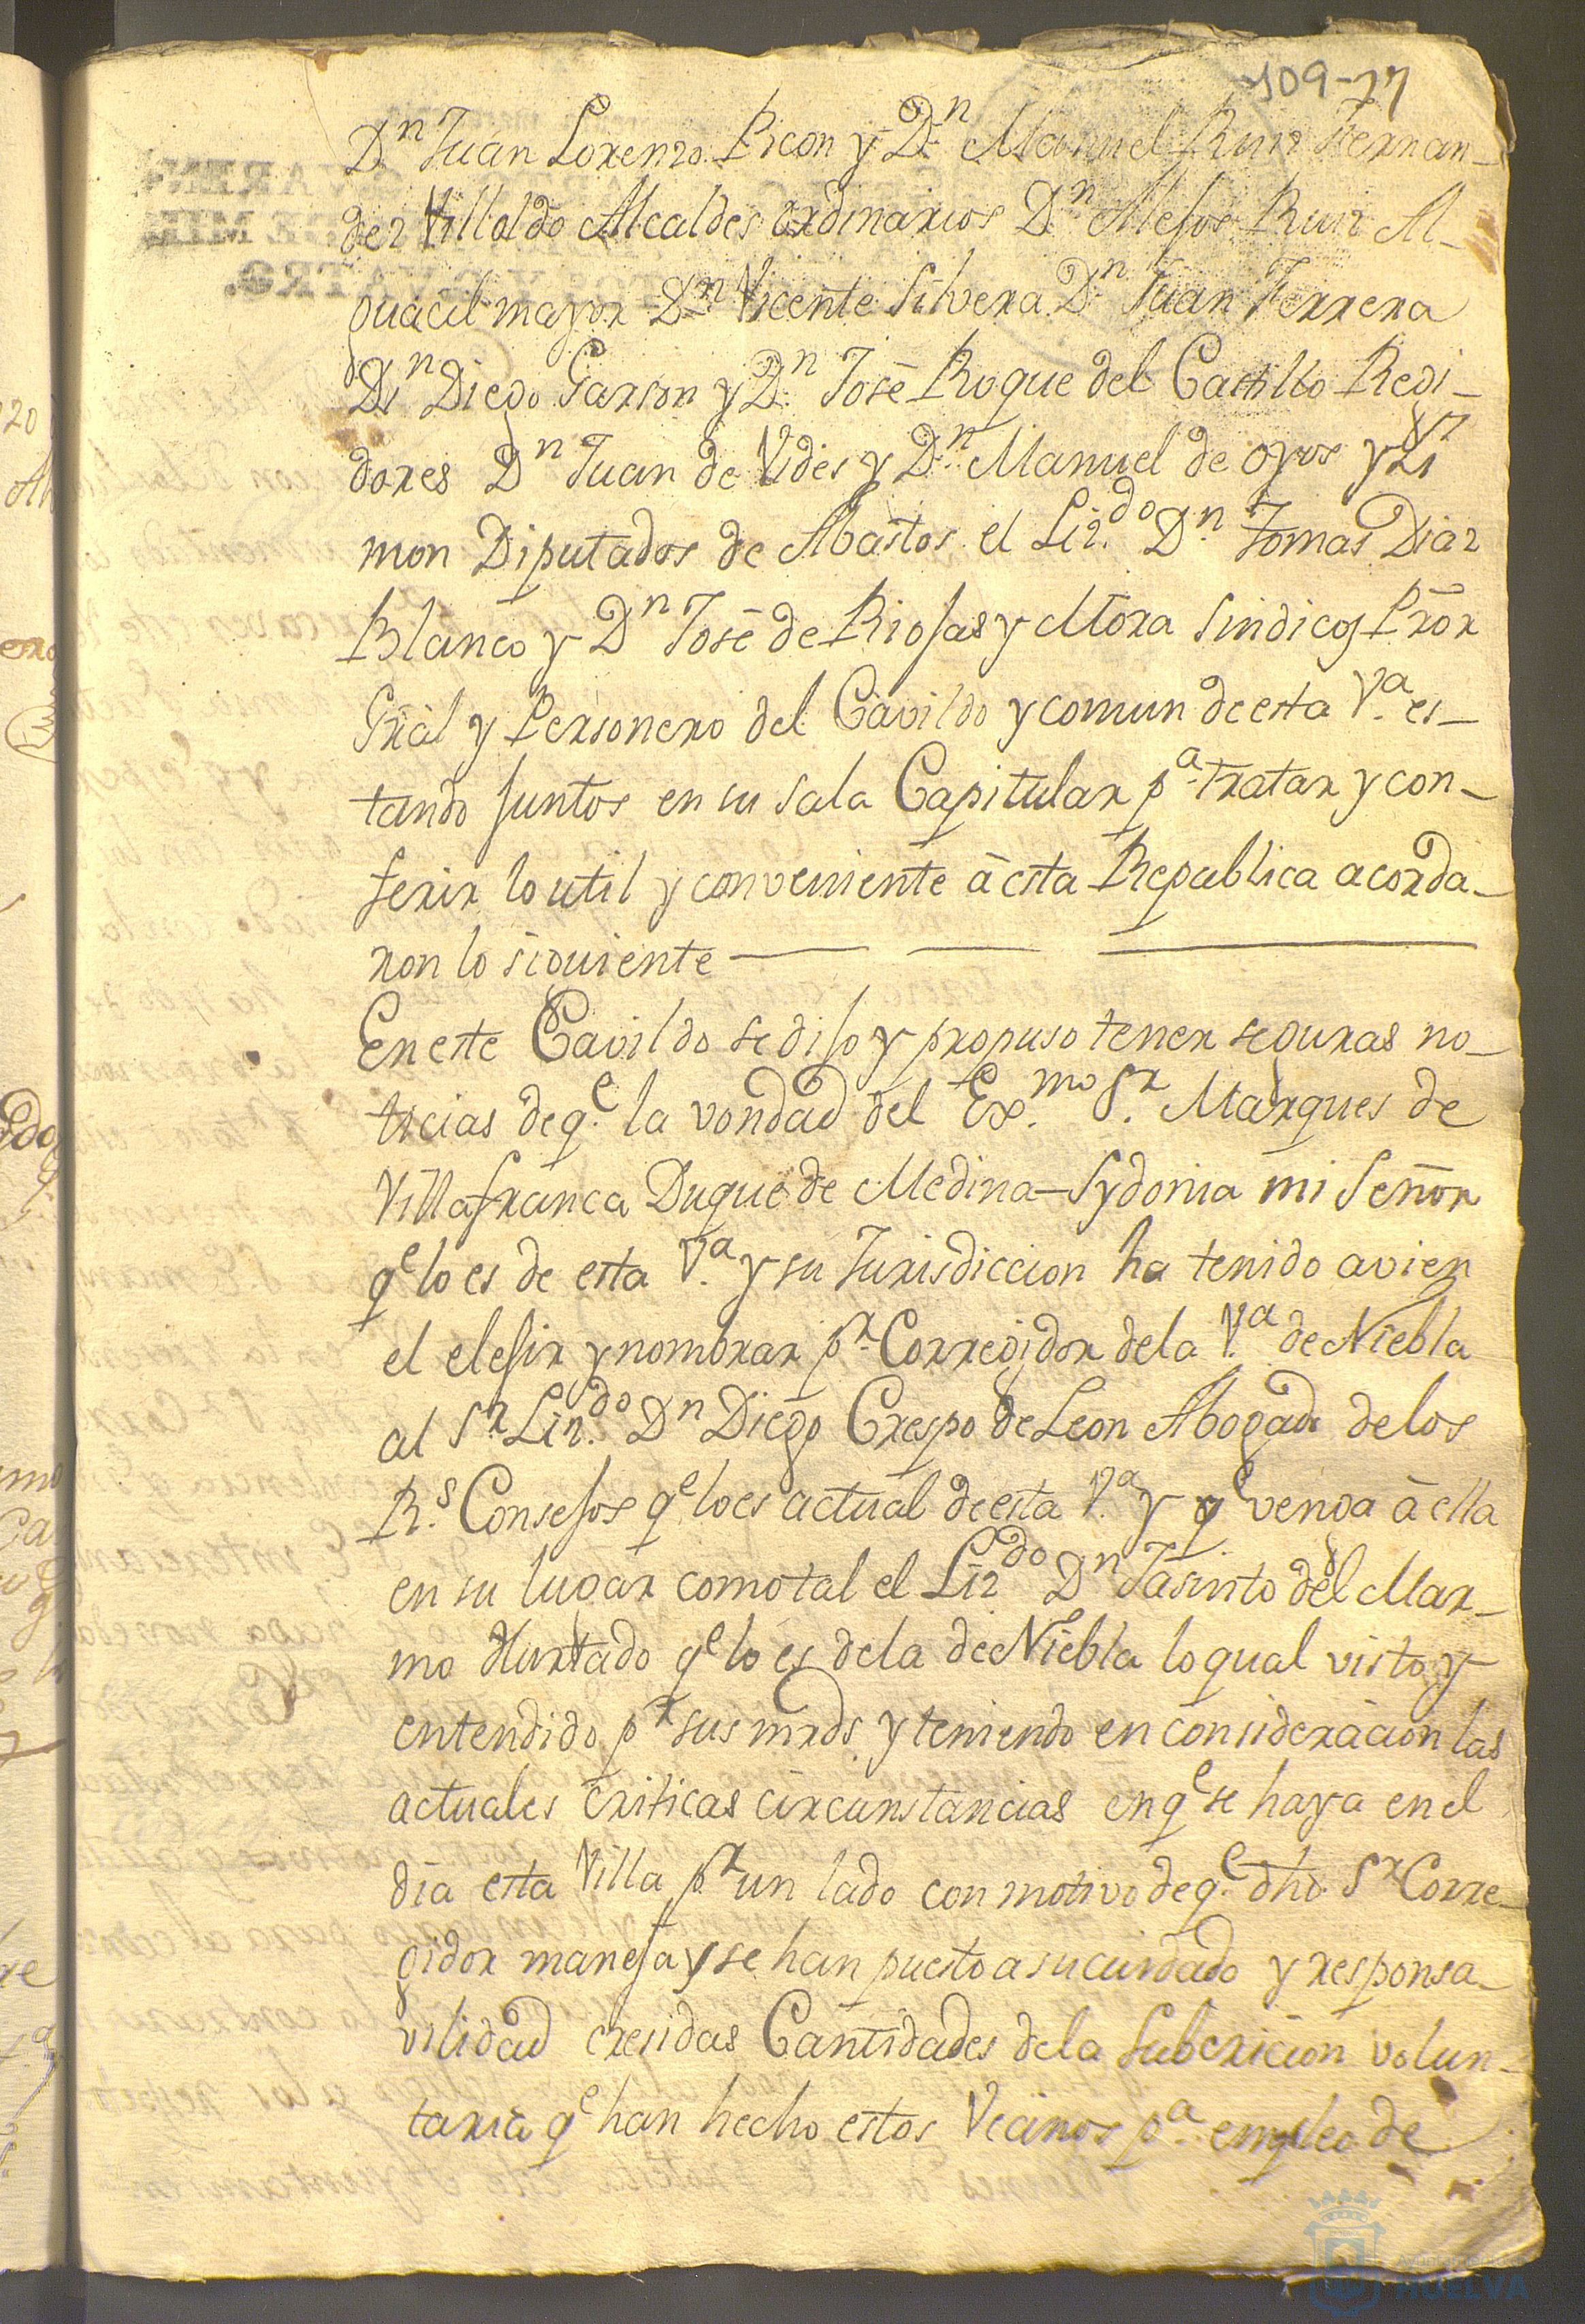 109-77
Dn Juan Lorenzo Picon y Dn Manuel Ruiz Fernan-
dez Villoldo Alcaldes ordinarios Dn Alejos Ruiz Al-
guacil mayor Dn Vicente Silvera Dn Juan Ferrera
Dn Diego Garson y Dn José Roque del Castillo Regi-
dores Dn Juan de Vides y Dn Manuel de oyos y Li
mon Diputados de Abastos el Liz.do Dn Tomas Diaz
Blanco y Dn José de Riojas y Mora Sindicos Prõr
Gral y Personero del Cavildo y comun de esta V.a es-
tando juntos en su sala Capitular p.a tratar y con-
ferir lo util y conveniente à esta Republica acorda-
ron lo siguiente
En este Cavildo se dijo y propuso tener seguras no-
ticias de q.e la vondad del Ex.mo S.r Marques de
Villafranca Duque de Medina-Sydonia mi Señor
qe lo es de esta V.a y su Jurisdiccion ha tenido avien
el elejir y nombrar p.r Corregidor de la V.a de Niebla
al S.r Liz.do Dn Diego Crespo de Leon Abogado de los
R.s Consejos qe lo es actual de esta V.a y qe venga à ella
en su lugar como tal el Liz.do Dn Jasinto del Mar-
mo Hurtado qe lo es de la de Niebla lo qual visto y
entendido p.r sus mrds y teniendo en consideracion las
actuales criticas circunstancias en qe se haya en el
dia esta Villa p.r un lado con motivo de q.e dho. S.r Corre-
gidor maneja y se han puesto a su cuidado y responsa-
vilidad cresidas Cantidades de la Subcricion volun-
taria qe han hecho estos Vecinos p.a empleo de
HUELVA